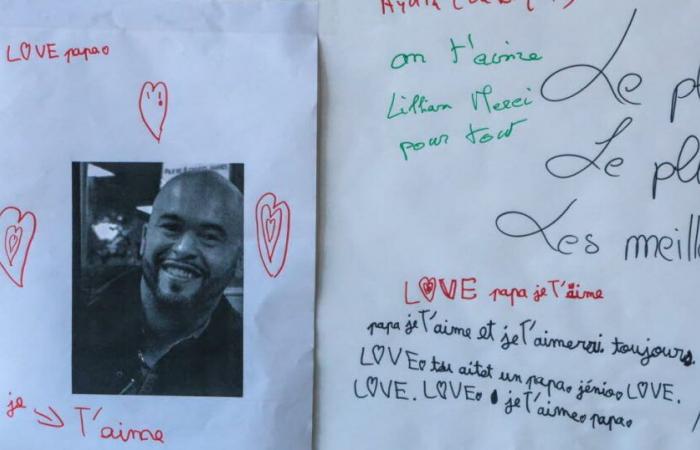 LOVE papa
je
T'aime
on t'aime
Lillian Merci
pour tout
Le pl
Le plu
Les meill
LOVE papa je T'aime
papa je T'aime et je T'aimerai toujours.
LOVE. tu aitet un papa. jénio. LOVE.
LOVE. LOVE. je T'aime. papa.